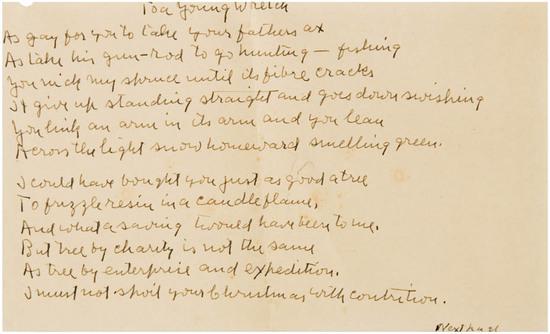 To a Young Wretch
As gay for you to take your fathers ax
As take his gun-rod to go hunting – fishing
You nick my spruce until its fibre cracks
It give up standing straight and goes down swishing
You link an arm in its arm and you lean
Across the light snow homeward smelling green.
I could have bought you just as good a tree
To frizzle resin in a candle flame,
And what a saving twould have been to me.
But tree by charity is not the same
As tree by enterprise and expedition.
I must not spoil your Christmas with contrition.
Next